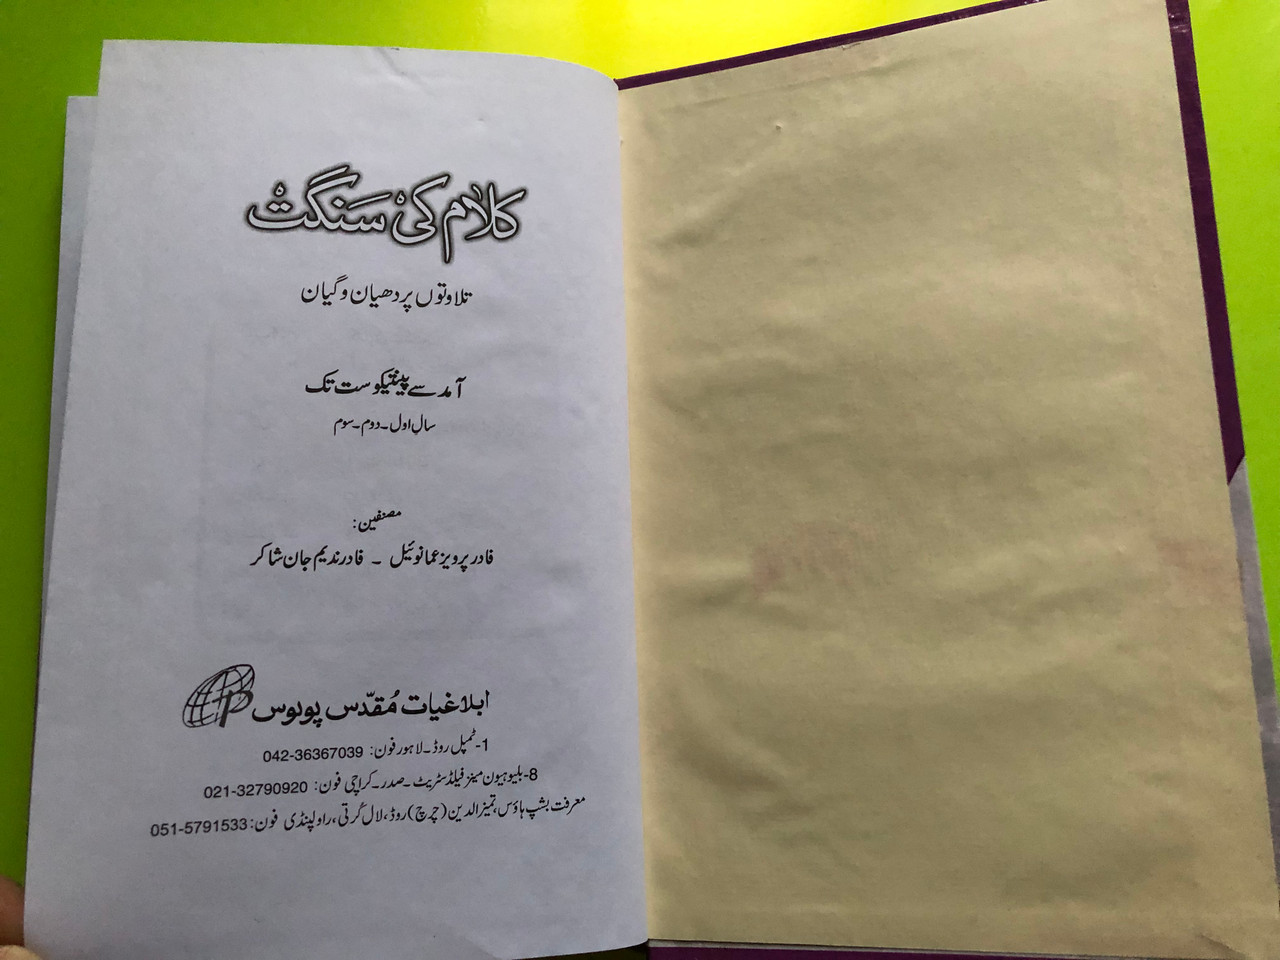 کلام کی سنگت
تلاوتوں پر دھیان و گیان
آمد سے پینتیکوست تک
سال اول۔دوم۔سوم
مصنفین:
فادر پرویز عمانوئیل ۔ فادر ندیم جان شاکر
ابلاغیات مُقدّس پولوس
1-ٹمپل روڈ۔لاہور فون: 042-36367039
8-بلیوہیون مینز فیلڈ سٹریٹ ۔صدر۔کراچی فون: 021-32790920
معرفت بشپ ہاؤس، تمیز الدین (چرچ) روڈ، لال گرتی، راولپنڈی فون: 051-5791533